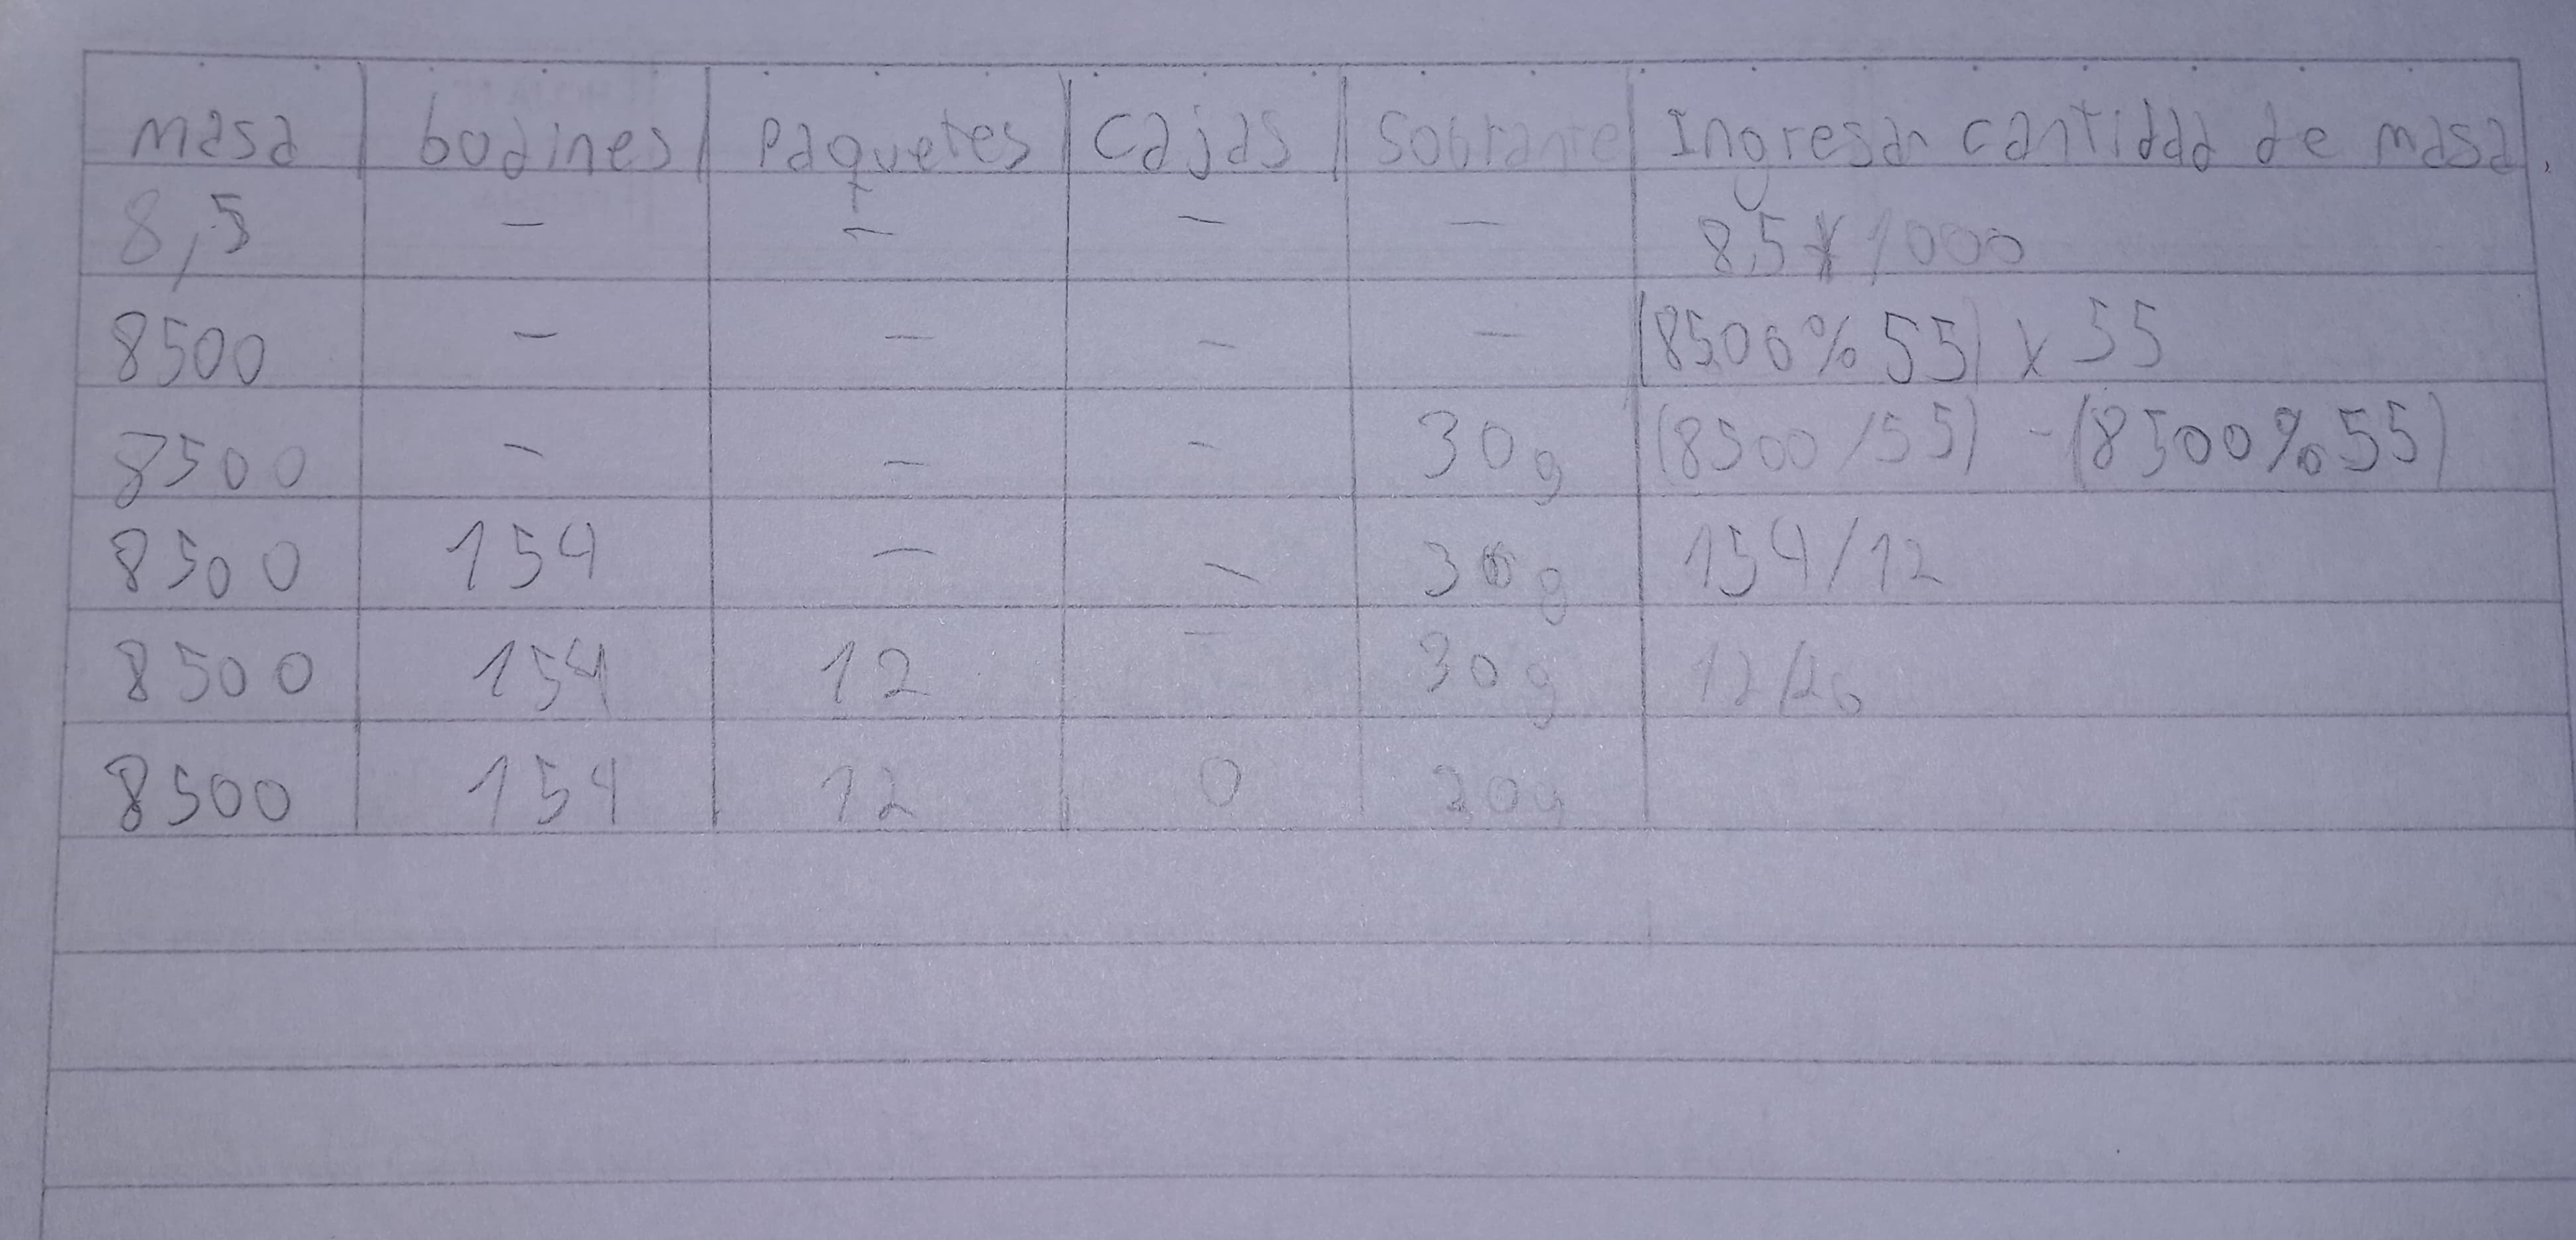 masa budines paquetes cajas sobrante Ingresar cantidad de masa.
8,5 - - - - 8,5 * 1000
8500 - - - - (8500%55) x 55
8500 - - - 30g (8500/55) - (8500%55)
8500 154 - - 30g 154/12
8500 154 12 - 30g 12/
8500 154 12 0 30g